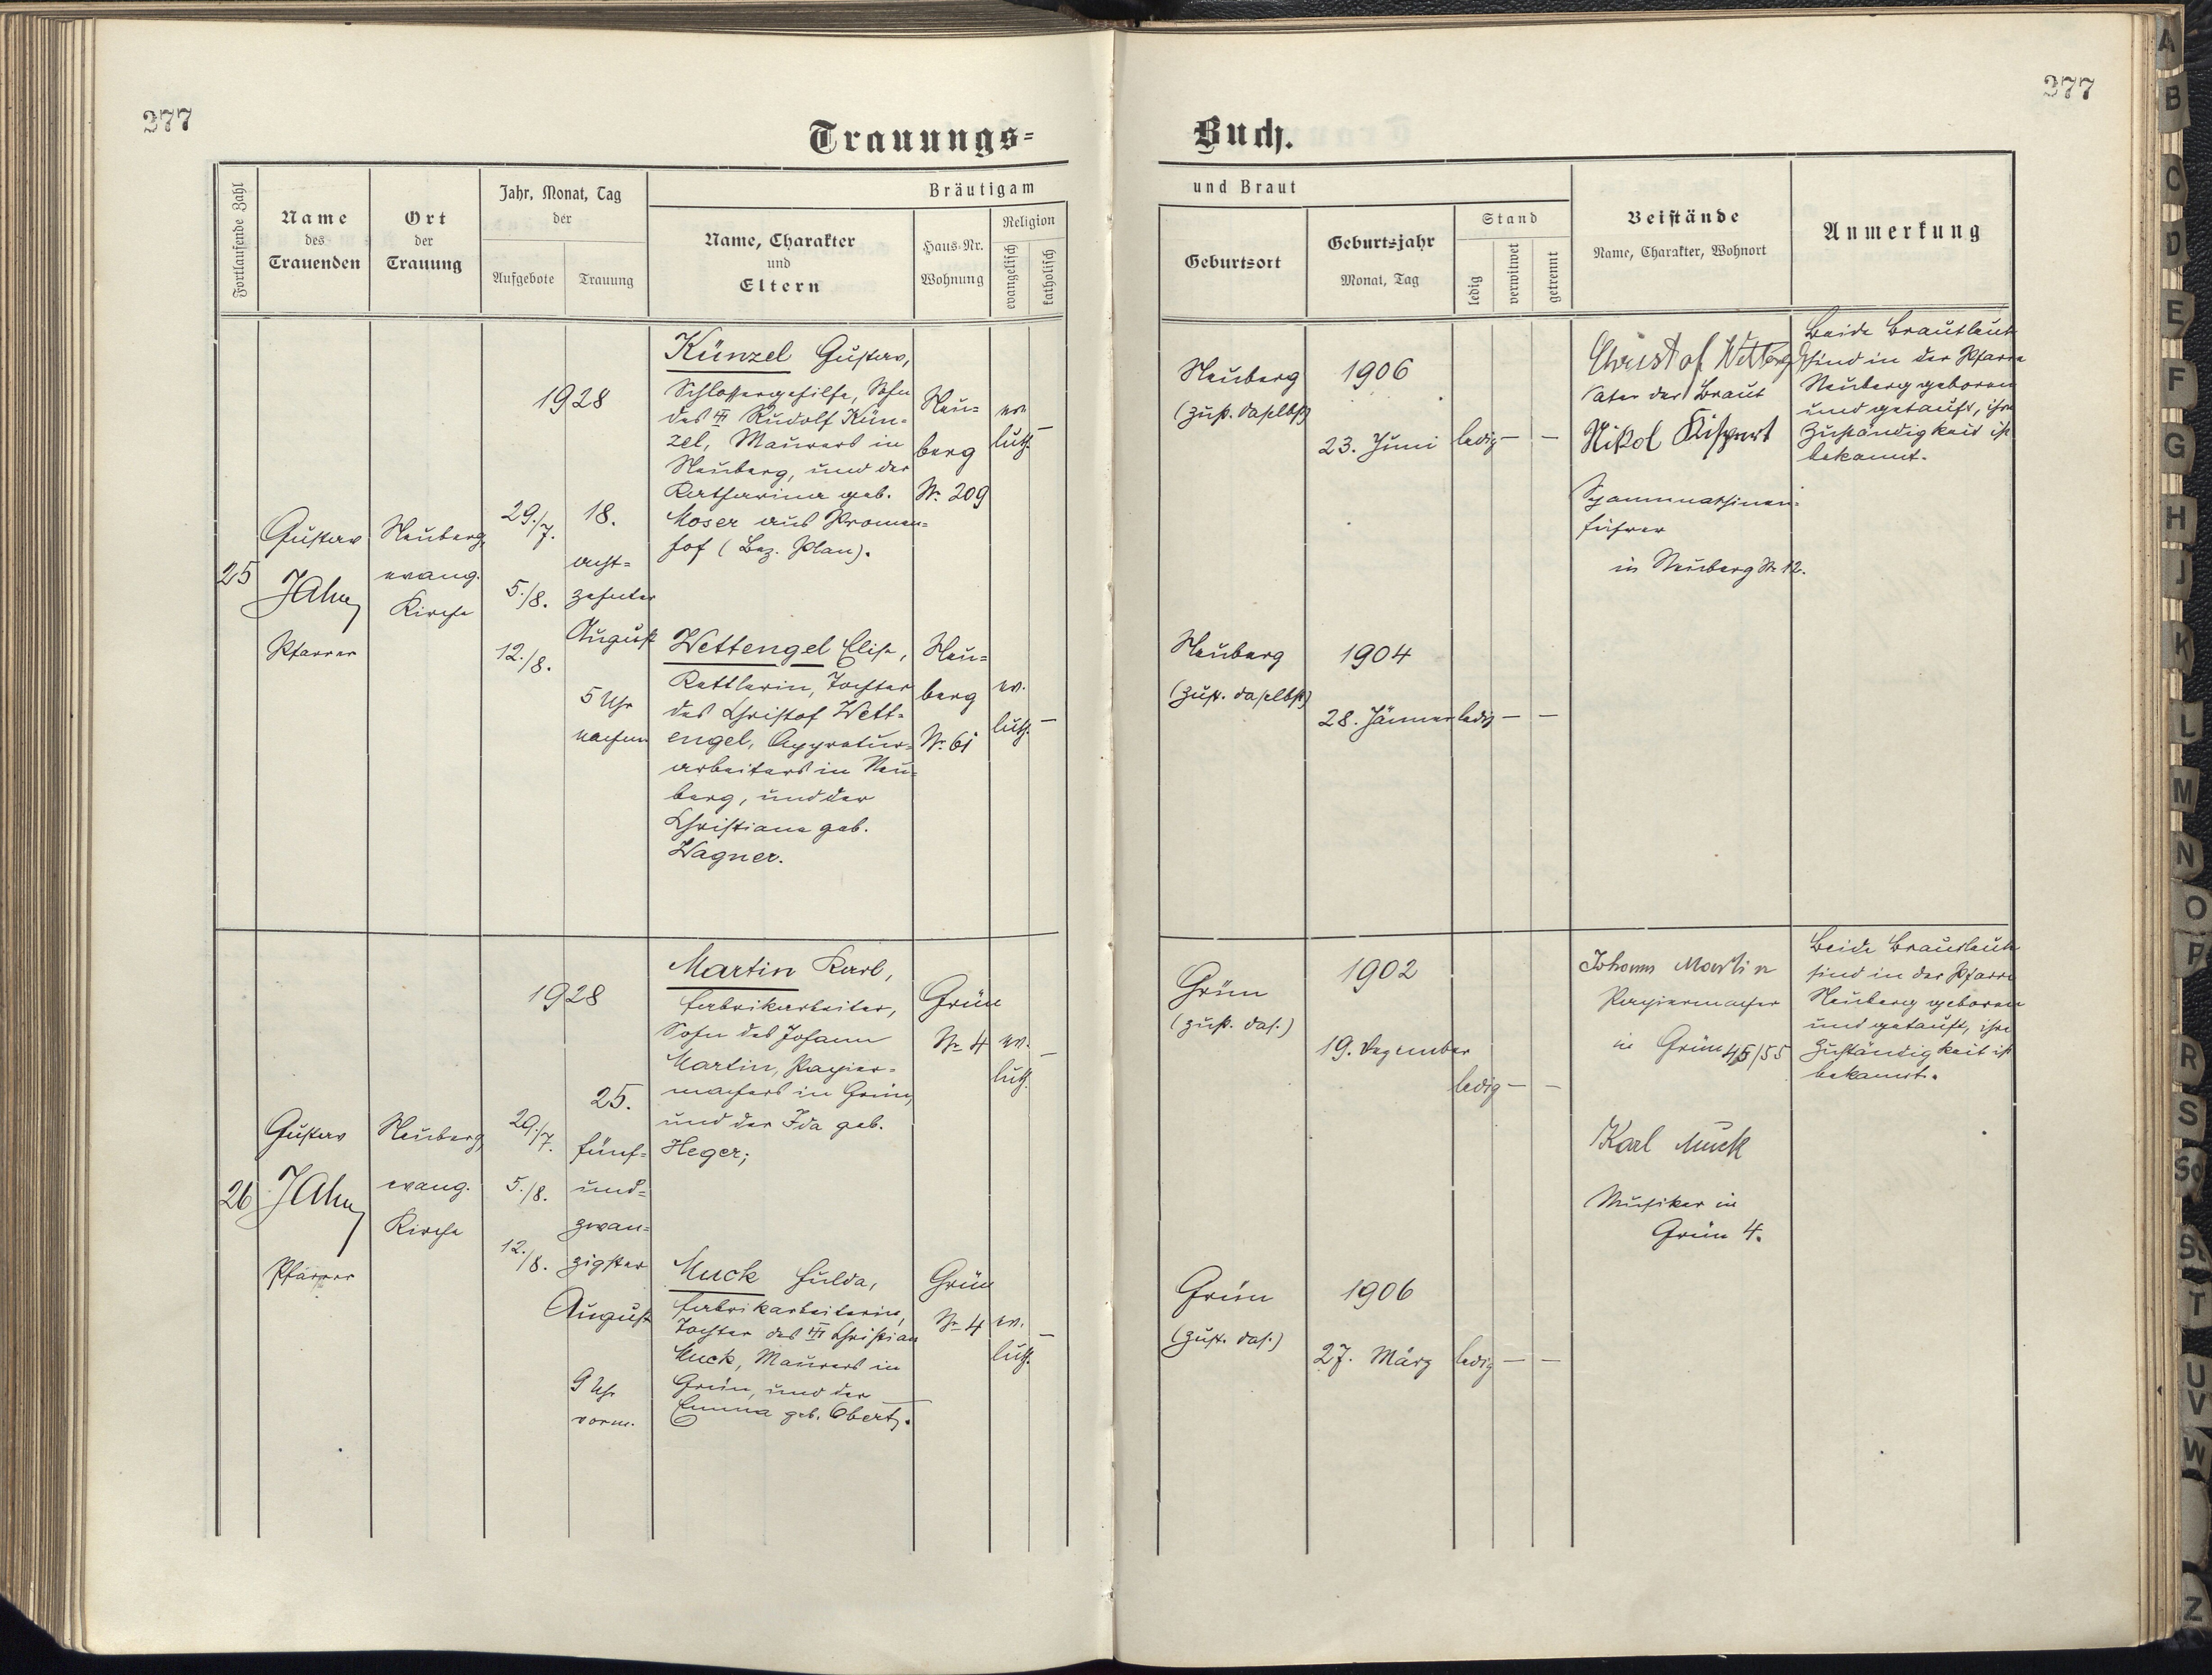 277
277
Trauungs=
Buch.
Fortlaufende Zahl
Name
des
Trauenden
Ort
der
Trauung
Jahr, Monat, Tag
der
Aufgebote
Trauung
Bräutigam
Name, Charakter
und
Eltern
Haus-Nr.
Wohnung
Religion
evangelisch
katholisch
und Braut
Geburtsort
Geburtsjahr
Monat, Tag
Stand
ledig
verwitwet
getrennt
Beistände
Name, Charakter, Wohnort
Anmerkung
25
Gustav
Jahn
Pfarrer
Neuberg,
evang.
Kirche
1928
29./7.
5./8.
12./8.
18.
acht=
zehnter
August
5 Uhr
nachm
Künzel Gustav,
Schlossergehilfe, Sohn
des Rudolf Kün=
zel, Maurers in
Neuberg, und der
Katharina geb.
Moser aus Promen=
hof (Bez. Plan).
Neu=
berg
Nr. 209
ev.
luth.
—
Neuberg
(zust. daselbst)
1906
23. Juni
ledig — —
Christof
Vater der Braut
Nikol Künzel
Spannmaschinen=
führer
in Neuberg Nr 12.
Beide Brautleute
sind in der Pfarre
Neuberg geboren
und getauft, ihre
Zuständigkeit ist
bekannt.
Wettengel Elise,
Kettlerin, Tochter
des Christof Wett=
engel, Appretur=
arbeiters in Neu=
berg, und der
Christiana geb.
Wagner.
Neu=
berg
Nr. 61
ev.
luth.
—
Neuberg
(zust. daselbst)
1904
28. Jänner
ledig — —
26
Gustav
Jahn
Pfarrer
Neuberg,
evang.
Kirche
1928
29./7.
5./8.
12./8.
25.
fünf=
und=
zwan=
zigster
August
9 Uhr
vorm.
Martin Karl,
Fabrikarbeiter,
Sohn des Johann
Martin, Papier=
machers in Grün,
und der Ida geb.
Heger;
Grün
Nr 4
ev.
luth.
—
Grün
(zust. das.)
1902
19. Dezember
ledig — —
Johann Martin
Papiermacher
in Grün 45/55
Karl Muck
Musiker in
Grün 4.
Beide Brautleute
sind in der Pfarre
Neuberg geboren
und getauft, ihre
Zuständigkeit ist
bekannt.
Muck Hulda,
Fabrikarbeiterin,
Tochter des Christian
Muck, Maurers in
Grün, und der
Emma geb.
Grün
Nr 4
ev.
luth.
—
Grün
(zust. das.)
1906
27. März
ledig — —
A
B
C
D
E
F
G
H
J
K
L
M
N
O
P
R
S
St
T
U
V
W
Z